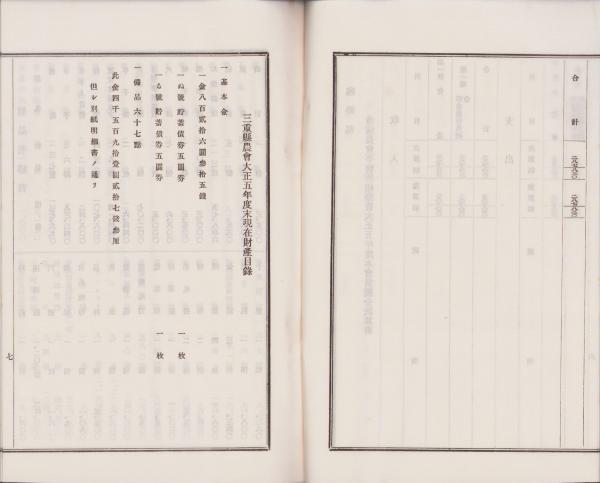 合計
三重縣農會大正五年度末現在財產目錄
一基本金
一金八百貳拾六圓參拾五錢
一ぬ號貯蓄債券五圓券 一枚
一る號貯蓄債券五圓券 一枚
一備品六十七點
此金四千五百九拾壹圓貳拾七錢參厘
但シ別紙明細書ノ通リ
七